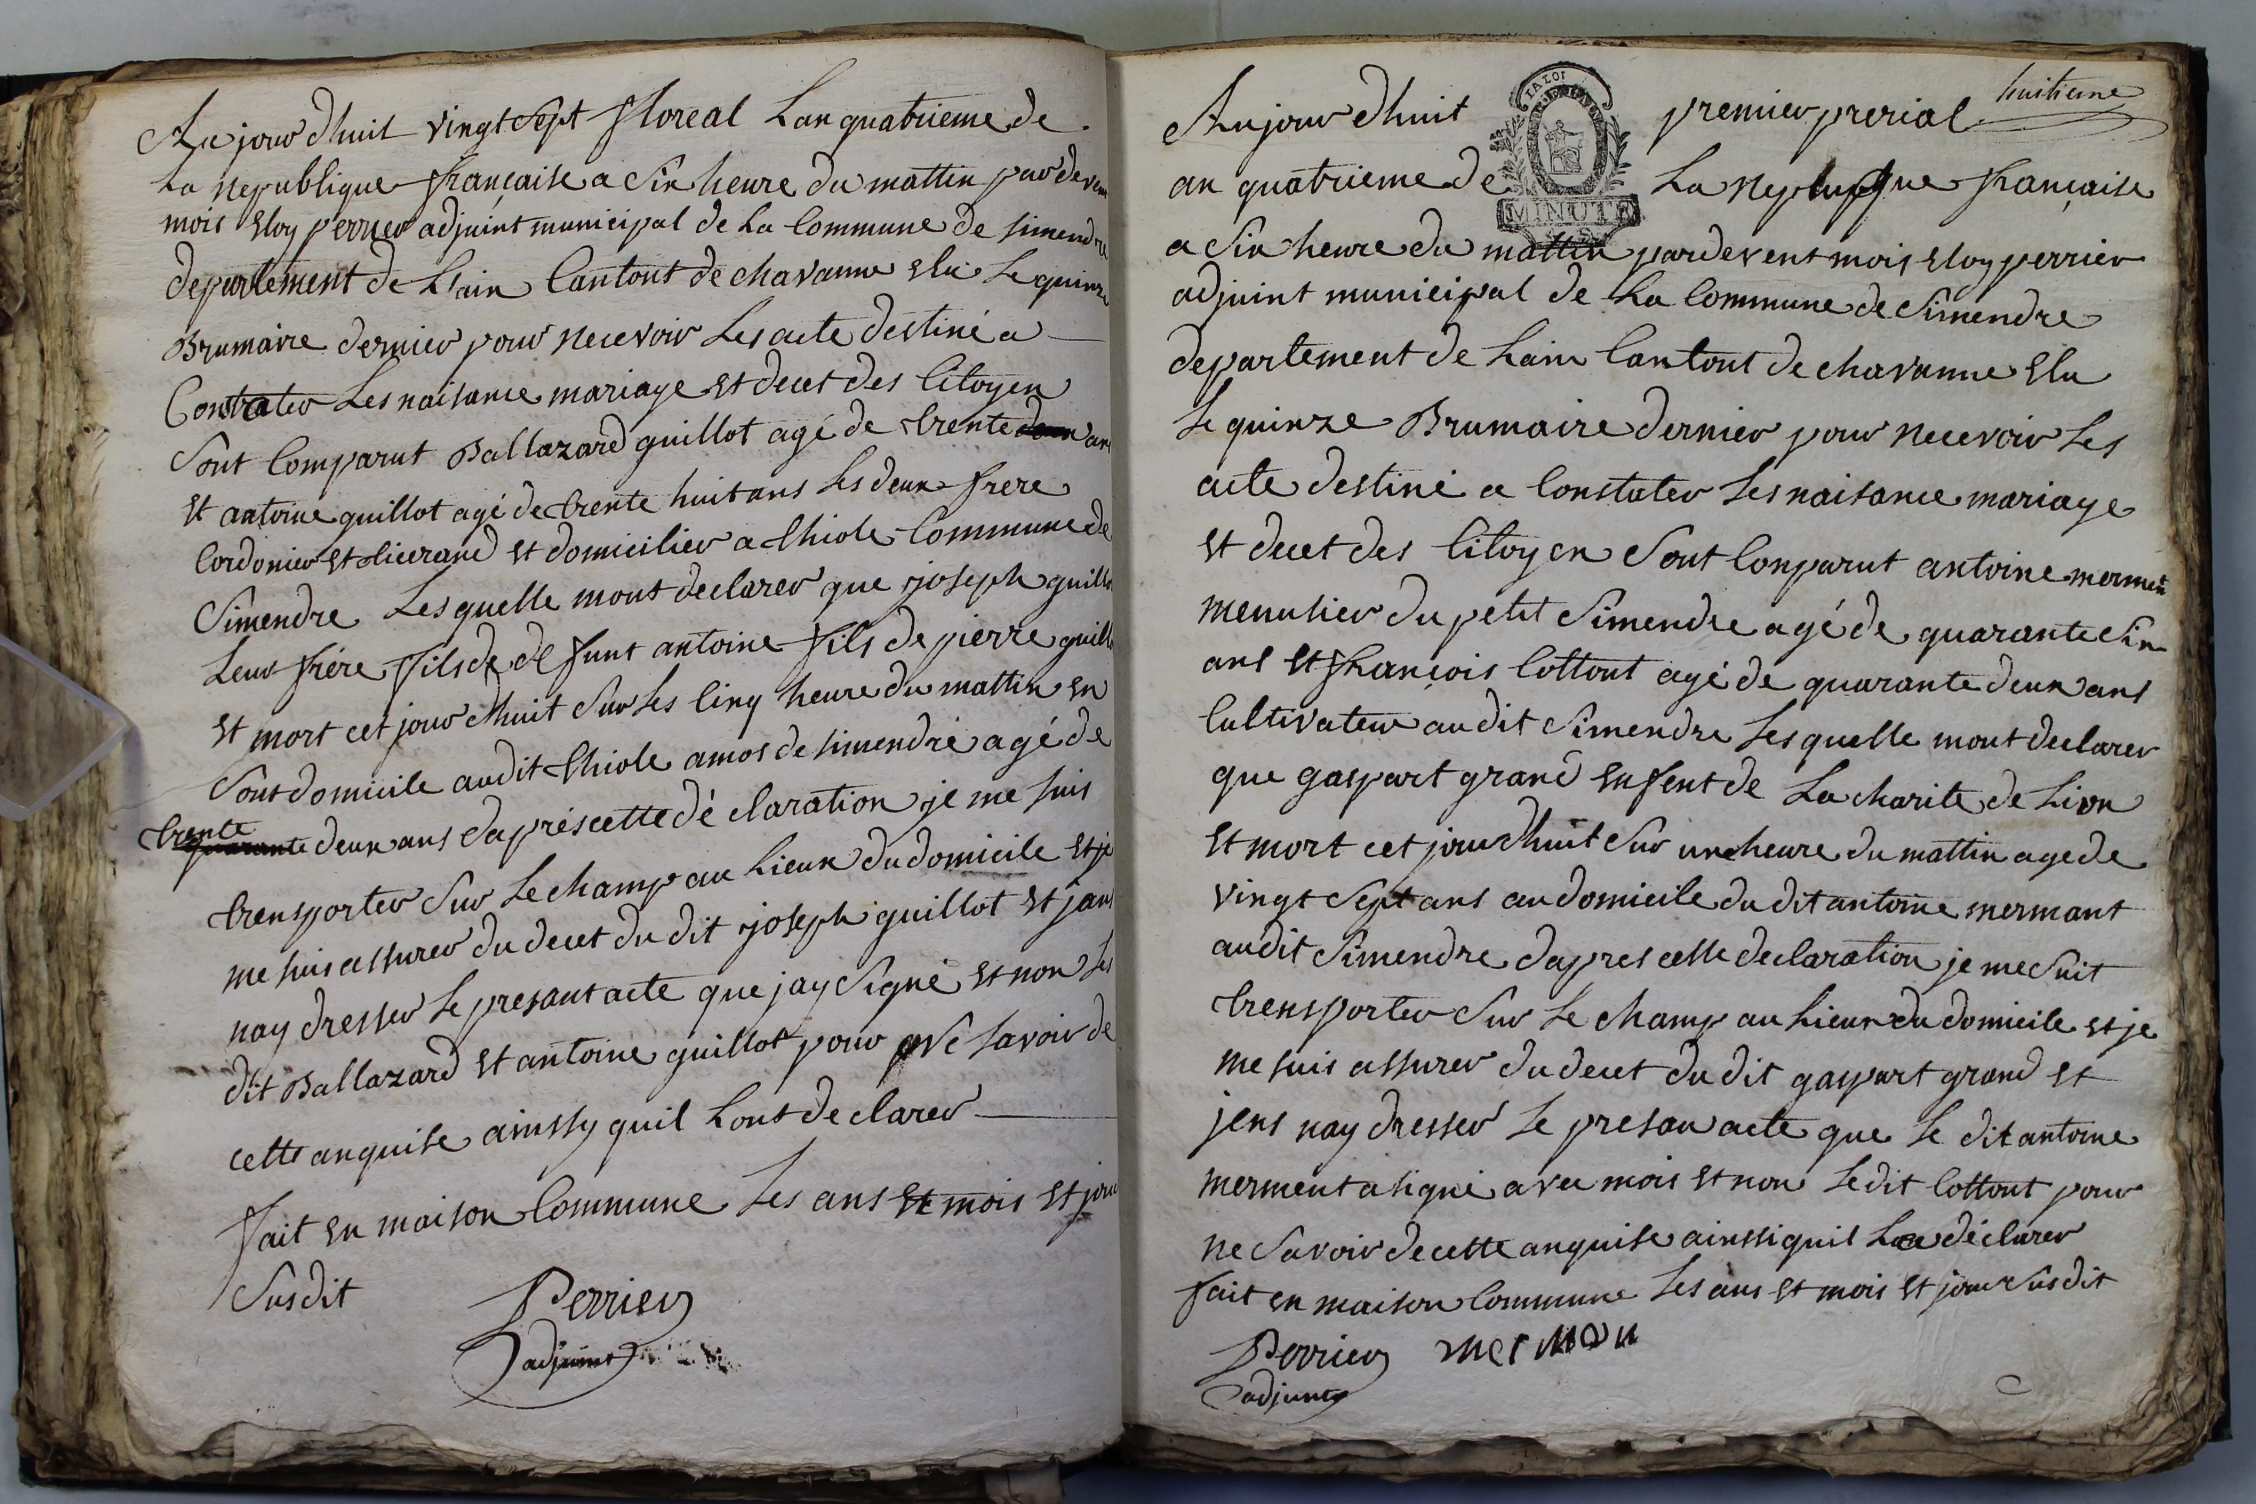 Au jour dhuit vingt sept floreal Lan quatrieme de
La Republique française a Six heure du mattin par devent
mois Eloy perrier adjuint municipal de La Commune de Simendre
departement de L'ain Cantont de chavanne Elu Le quinze
Brumaire dernier pour Recevoir Les acte destiné a
Constater Les naisance mariage Et decet des Citoyen
Sont Comparut Ballazard guillot agé de trente ans
Et antoine guillot agé de trente huit ans Les deux frere
Cordonier Et tierand Et domicilier a Thiole Commune de
Simendre Les quelle mont declarer que joseph guillot
Leur frére fils de defunt antoine fils de pierre guillot
Et mort cet jour dhuit Sur Les Cinq heure du mattin En
Sont domicile audit Thiole amos de Simendre agé de
trente quarante deux ans d'aprés cette déclaration je me suis
trensporter Sur Le champ au Lieux du domicile Et je
me suis assurer du decet du dit joseph guillot Et jans
nay dresser Le presant acte que jay Signé Et non Les
dit Ballazard Et antoine guillot pour ne Savoir de
cette anquise ainssy quil Lont declarer
Fait En maison Commune Les ans Et mois Et jour
Susdit
Perrier
adjuint
huitieme
Aujour dhuit premier prerial
LA LOI
MINUTE
an quatrieme de La Republique française
a Six heure du mattin pardevent mois Eloy perrier
adjuint municipal de La Commune de Simendre
departement de Lain Cantont de chavanne Elu
Le quinze Brumaire dernier pour Recevoir Les
acte destiné a Constater Les naisance mariage
Et decet des Citoyen Sont Conparut antoine merment
menusier du petit Simendre agé de quarante Six
ans Et François Cottont agé de quarante deux ans
Cultivateur audit Simendre Les quelle mont declarer
que gaspart grand Enfent de La charite de Lion
Et mort cet jour dhuit Sur une heure du mattin age de
vingt Sept ans au domicile du dit antoine mermant
audit Simendre dapres cette declaration je me Suit
trensporter Sur Le champ au Lieux du domicile Et je
me suis assurer du decet du dit gaspart grand Et
jens nay dresser Le presan acte que Le dit antoine
merment a signé avec mois Et non Ledit Cottont pour
ne Savoir de cette anquise ainssi quil La déclarer
Fait En maison Commune Les ans Et mois Et jour Susdit
Perrier merman
adjuint